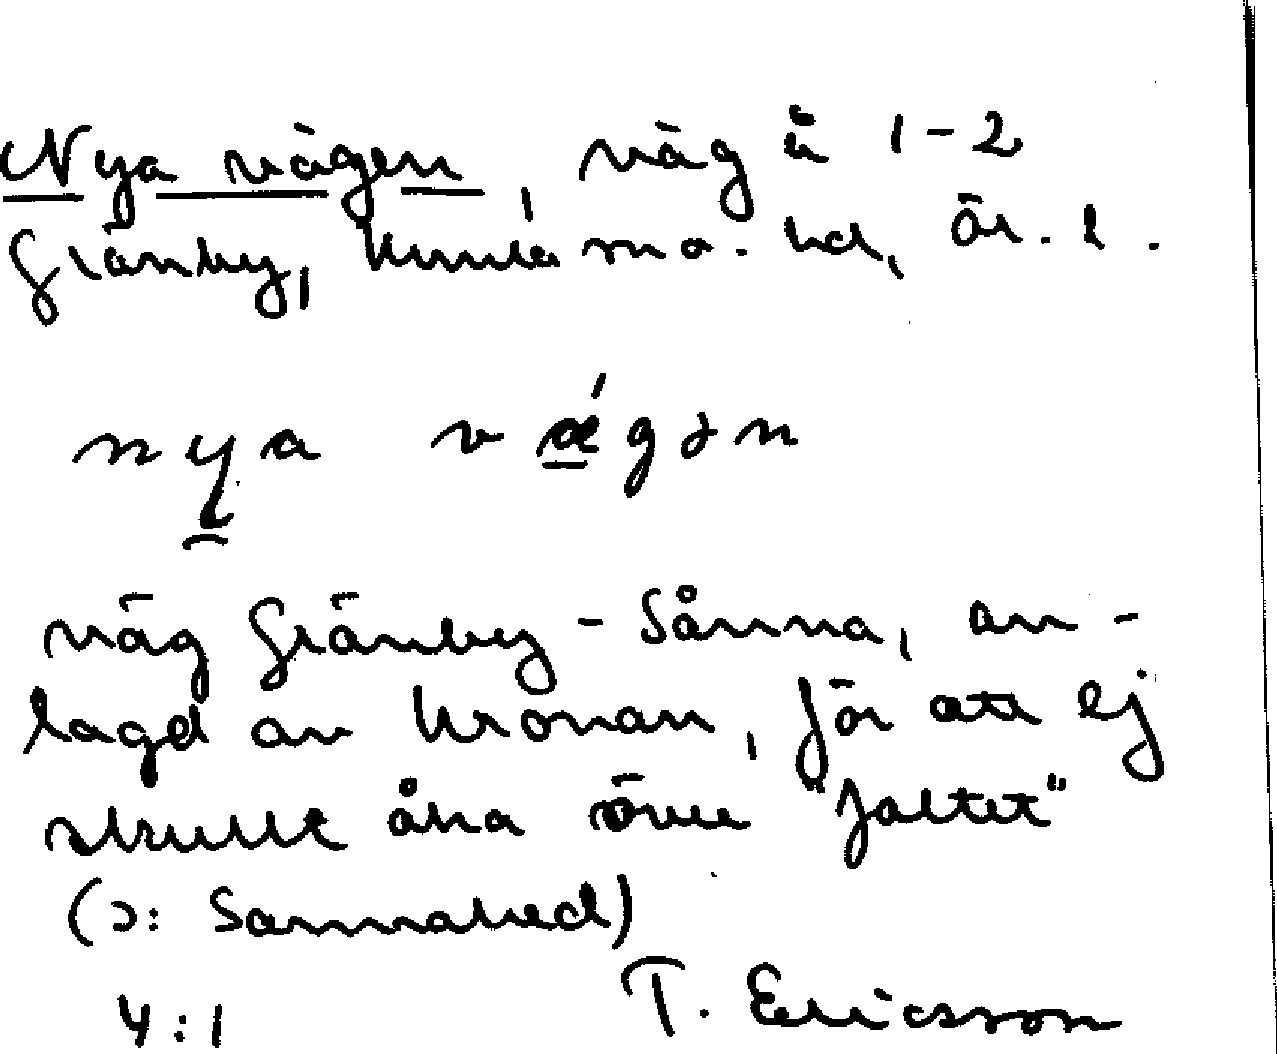 Nya vägen, väg å 1-2
Gränby, Kumla sn o. hd, Ör. l.
nya vǽgən
väg Gränby - Sånna, an-
lagd av kronan, för att ej
skulle åka över "fältet"
(ɔ: Sannahed)
4:1 T. Ericsson